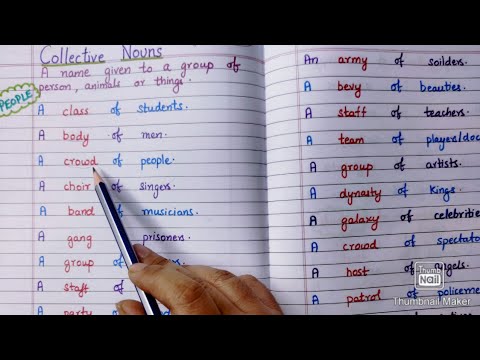 Collective Nouns
A name given to a group of
person, animals or things.
PEOPLE
A class of students.
A body of men.
A crowd of people.
A choir of singers.
A band of musicians.
A gang prisoners.
A group of
A staff of
A party of
An army of soilders.
A bevy of beauties.
A staff of teachers.
A team of player/doc
A group of artists.
A dynasty of Kings.
A galaxy of celebritie
A crowd of spectato
A host of angels.
A patrol of policeme
Thumb
Nail
Thumbnail Maker